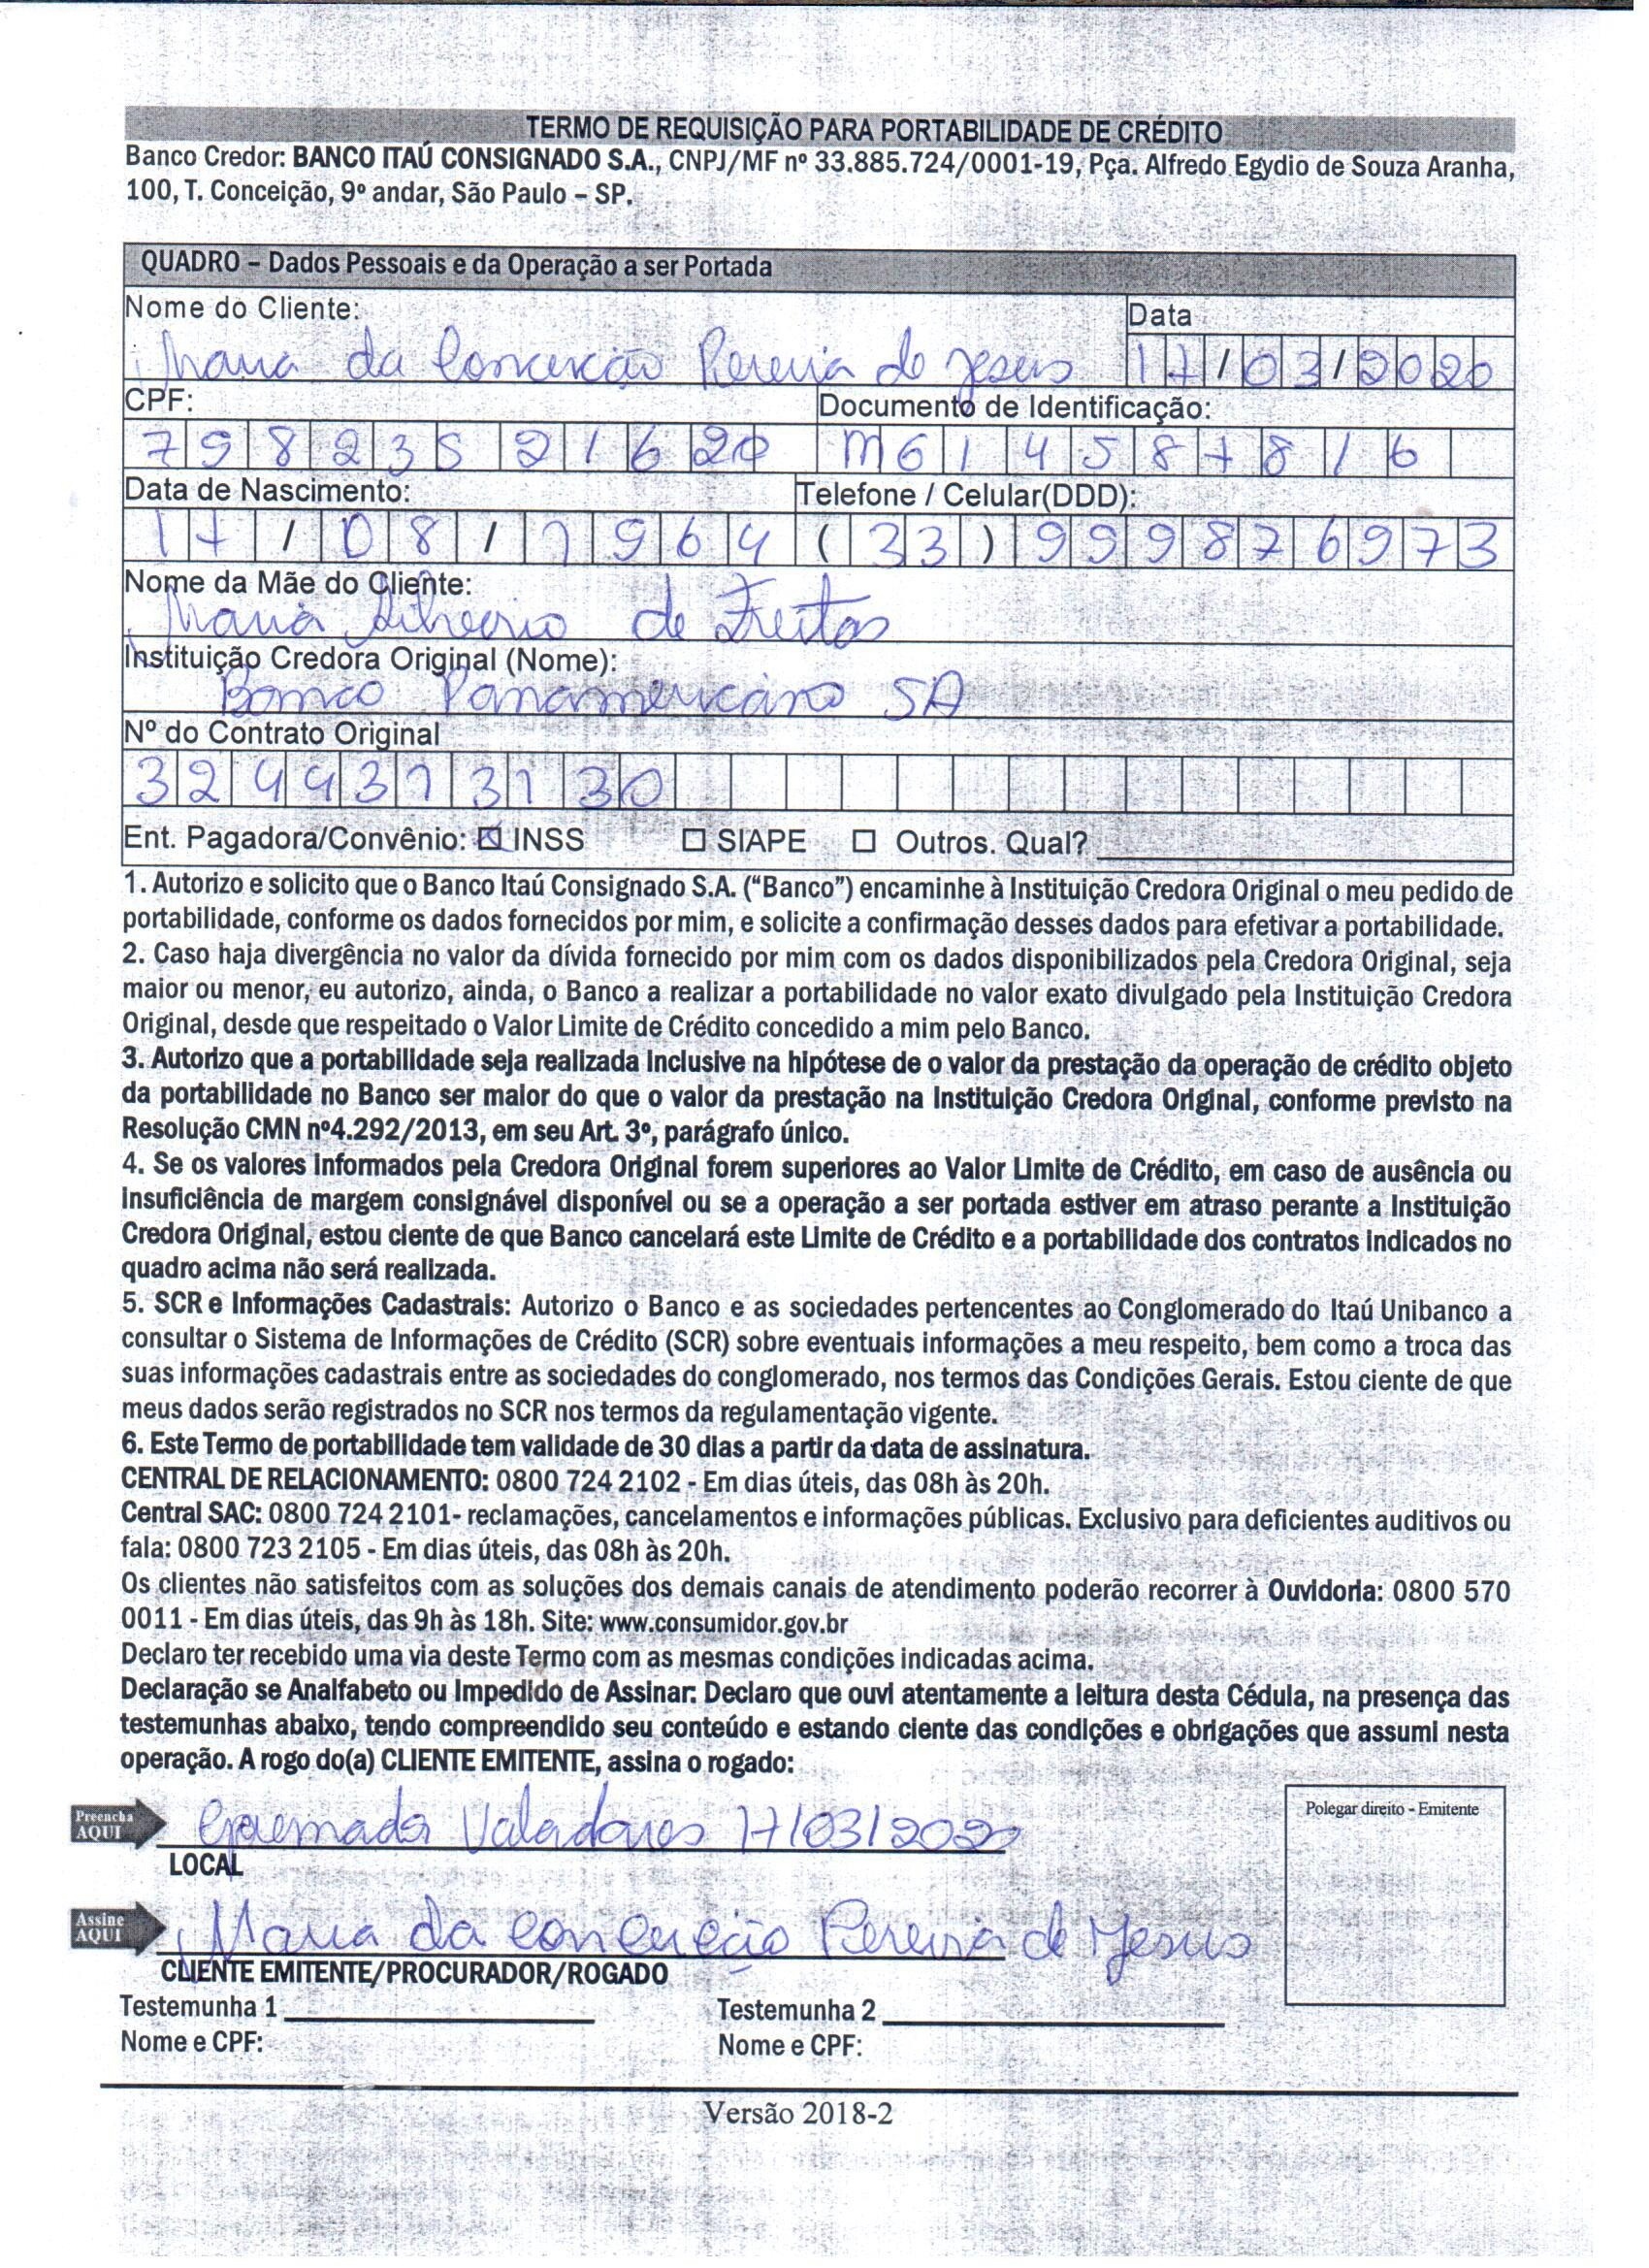 TERMO DE REQUISIÇÃO PARA PORTABILIDADE DE CRÉDITO
Banco Credor: BANCO ITAÚ CONSIGNADO S.A., CNPJ/MF nº 33.885.724/0001-19, Pça. Alfredo Egydio de Souza Aranha,
100, T. Conceição, 9º andar, São Paulo – SP.
QUADRO – Dados Pessoais e da Operação a ser Portada
Nome do Cliente: Data
Maria da Conceição Pereira de Jesus 17/03/2020
CPF: Documento de Identificação:
7 9 8 2 3 5 2 1 6 20 M 6 1 4 5 8 7 8 1 6
Data de Nascimento: Telefone / Celular(DDD):
17/08/1964 (33) 999876973
Nome da Mãe do Cliente:
Maria de Freitas
Instituição Credora Original (Nome):
Banco Panamericano SA
Nº do Contrato Original
3 2 4 4 3 1 3 1 3 0
Ent. Pagadora/Convênio: ☒ INSS ☐ SIAPE ☐ Outros. Qual?
1. Autorizo e solicito que o Banco Itaú Consignado S.A. (“Banco”) encaminhe à Instituição Credora Original o meu pedido de
portabilidade, conforme os dados fornecidos por mim, e solicite a confirmação desses dados para efetivar a portabilidade.
2. Caso haja divergência no valor da dívida fornecido por mim com os dados disponibilizados pela Credora Original, seja
maior ou menor, eu autorizo, ainda, o Banco a realizar a portabilidade no valor exato divulgado pela Instituição Credora
Original, desde que respeitado o Valor Limite de Crédito concedido a mim pelo Banco.
3. Autorizo que a portabilidade seja realizada inclusive na hipótese de o valor da prestação da operação de crédito objeto
da portabilidade no Banco ser maior do que o valor da prestação na Instituição Credora Original, conforme previsto na
Resolução CMN nº4.292/2013, em seu Art. 3º, parágrafo único.
4. Se os valores informados pela Credora Original forem superiores ao Valor Limite de Crédito, em caso de ausência ou
insuficiência de margem consignável disponível ou se a operação a ser portada estiver em atraso perante a Instituição
Credora Original, estou ciente de que Banco cancelará este Limite de Crédito e a portabilidade dos contratos indicados no
quadro acima não será realizada.
5. SCR e Informações Cadastrais: Autorizo o Banco e as sociedades pertencentes ao Conglomerado do Itaú Unibanco a
consultar o Sistema de Informações de Crédito (SCR) sobre eventuais informações a meu respeito, bem como a troca das
suas informações cadastrais entre as sociedades do conglomerado, nos termos das Condições Gerais. Estou ciente de que
meus dados serão registrados no SCR nos termos da regulamentação vigente.
6. Este Termo de portabilidade tem validade de 30 dias a partir da data de assinatura.
CENTRAL DE RELACIONAMENTO: 0800 724 2102 - Em dias úteis, das 08h às 20h.
Central SAC: 0800 724 2101- reclamações, cancelamentos e informações públicas. Exclusivo para deficientes auditivos ou
fala: 0800 723 2105 - Em dias úteis, das 08h às 20h.
Os clientes não satisfeitos com as soluções dos demais canais de atendimento poderão recorrer à Ouvidoria: 0800 570
0011 - Em dias úteis, das 9h às 18h. Site: www.consumidor.gov.br
Declaro ter recebido uma via deste Termo com as mesmas condições indicadas acima.
Declaração se Analfabeto ou Impedido de Assinar: Declaro que ouvi atentamente a leitura desta Cédula, na presença das
testemunhas abaixo, tendo compreendido seu conteúdo e estando ciente das condições e obrigações que assumi nesta
operação. A rogo do(a) CLIENTE EMITENTE, assina o rogado:
Preencha
AQUI
Valadares 17/03/2020
LOCAL
Polegar direito - Emitente
Assine
AQUI
Maria da Conceição Pereira de Jesus
CLIENTE EMITENTE/PROCURADOR/ROGADO
Testemunha 1 Testemunha 2
Nome e CPF: Nome e CPF:
Versão 2018-2